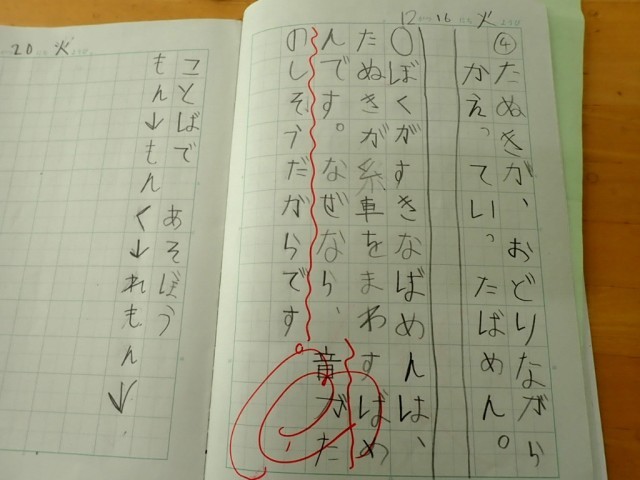 12 16 火
④たぬきが、おどりながら
かえっていったばめん。
○ぼくがすきなばめんは、
たぬきが糸車をまわすばめ
んです。なぜなら、音がた
のしそうだからです
20 火
ことばで あそぼう
もん↓もんく↓れもん↓